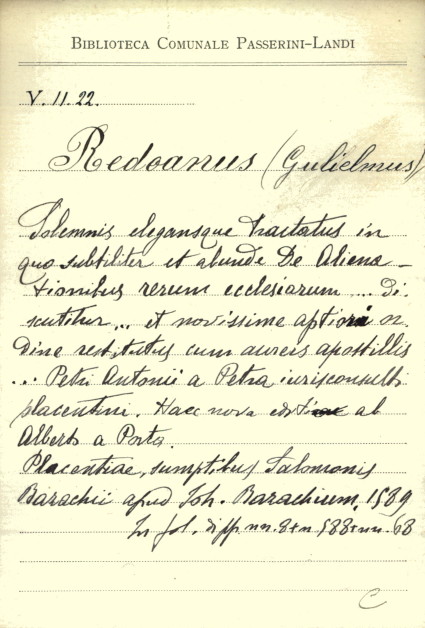 BIBLIOTECA COMUNALE PASSERINI-LANDI
V. 11. 22.
Redoanus (Gulielmus)
Solemnis elegansque tractatus in
quo subtiliter et abunde De Aliena-
tionibus rerum ecclesiarum ... Di-
scutitur ... et novissime aptiori or
dine restitutus cum aureis apostillis
... Petri Antonii a Petra iurisconsulti
placentini. Haec nova editione ab
Alberto a Porta.
Placentiae, sumptibus Salomonis
Barachii apud Joh. Barachium, 1589
In fol. di pp. nn. 8 + n. 588 + nn. 68
C